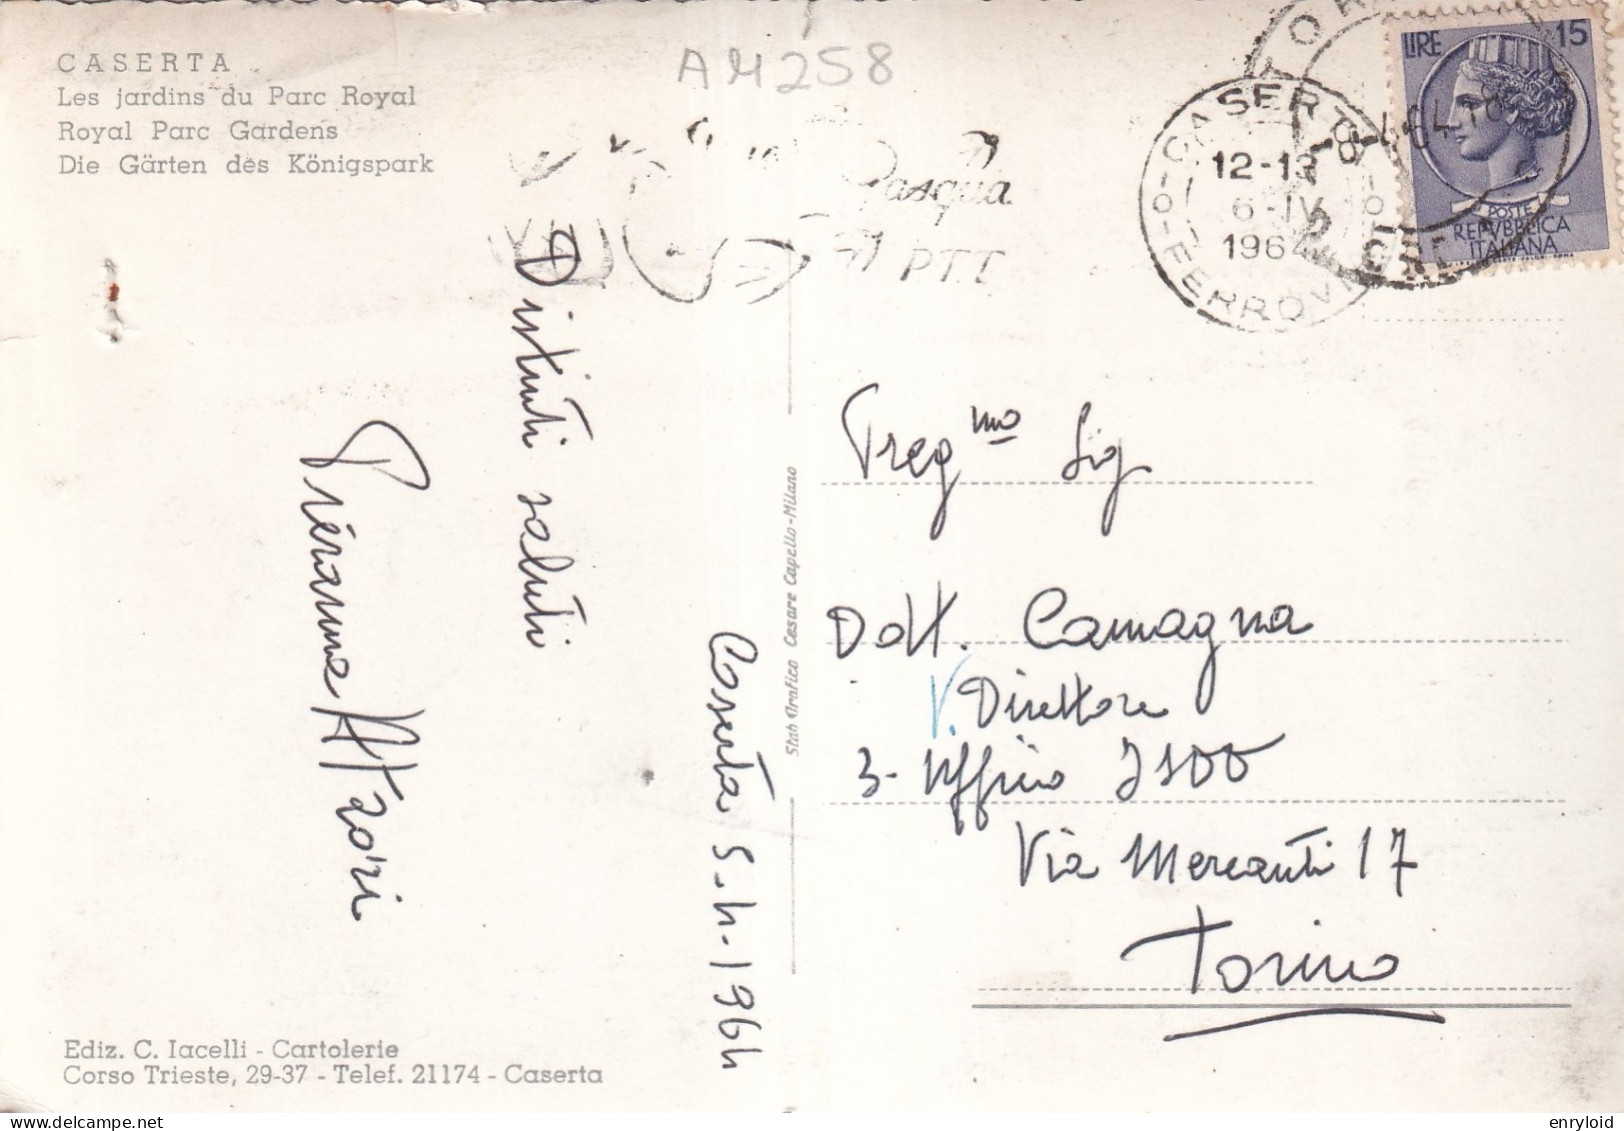 CASERTA
Les jardins du Parc Royal
Royal Parc Gardens
Die Gärten des Königspark
AM258
Pasqua
PTT
CASERTA
12-13
6-IV
1964
FERROVIA
LIRE 15
POSTE
REPVBBLICA
ITALIANA
Distinti saluti
Caserta 5.4.1964
Stab Grafico Cesare Capello-Milano
Preg mo Sig
Dott. Camagna
V. Direttore
3- Uffino
Via Mercanti 17
Torino
Ediz. C. Iacelli - Cartolerie
Corso Trieste, 29-37 - Telef. 21174 - Caserta
enryloid @ delcampe.net